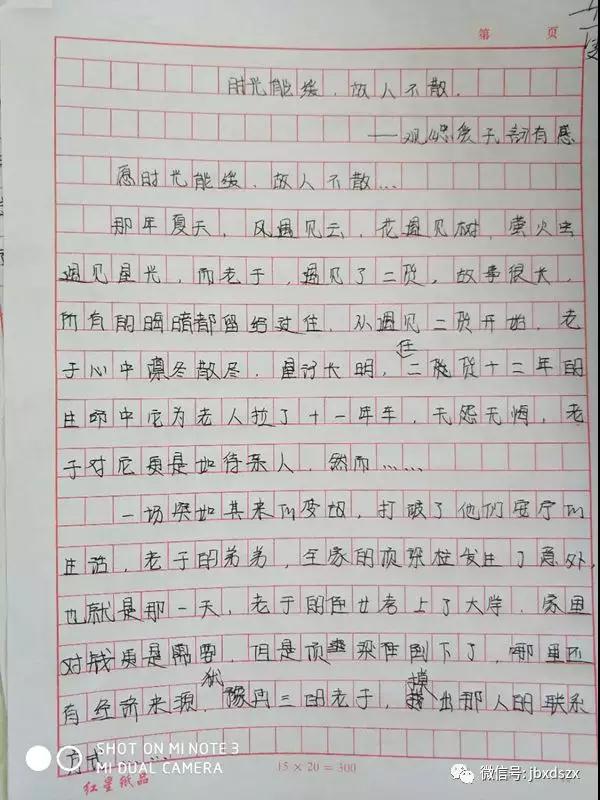 第 页
时光能缓,故人不散.
——观忠爱无言有感
愿时光能缓,故人不散…
那年夏天,风遇见云,花遇见树,萤火虫
遇见星光,而老于,遇见了二货,故事很长,
所有的晦暗都留给过往,从遇见二货开始,老
于心中凛冬散尽,星河长明,在二货十二年的
生命中它为老人拉了十一年车,无怨无悔,老
于对它真是如待亲人,然而……
一场突如其来的变故,打破了他们安宁的
生活,老于的弟弟,全家的顶梁柱发生了意外,
也就是那一天,老于的侄女考上了大学,家里
对钱真是需要,但是顶梁柱倒下了,哪里还
有经济来源,犹豫再三的老于,摸出那人的联系
方式……
SHOT ON MI NOTE 3
MI DUAL CAMERA
15 × 20 = 300
红星纸品
微信号: jbxdszx